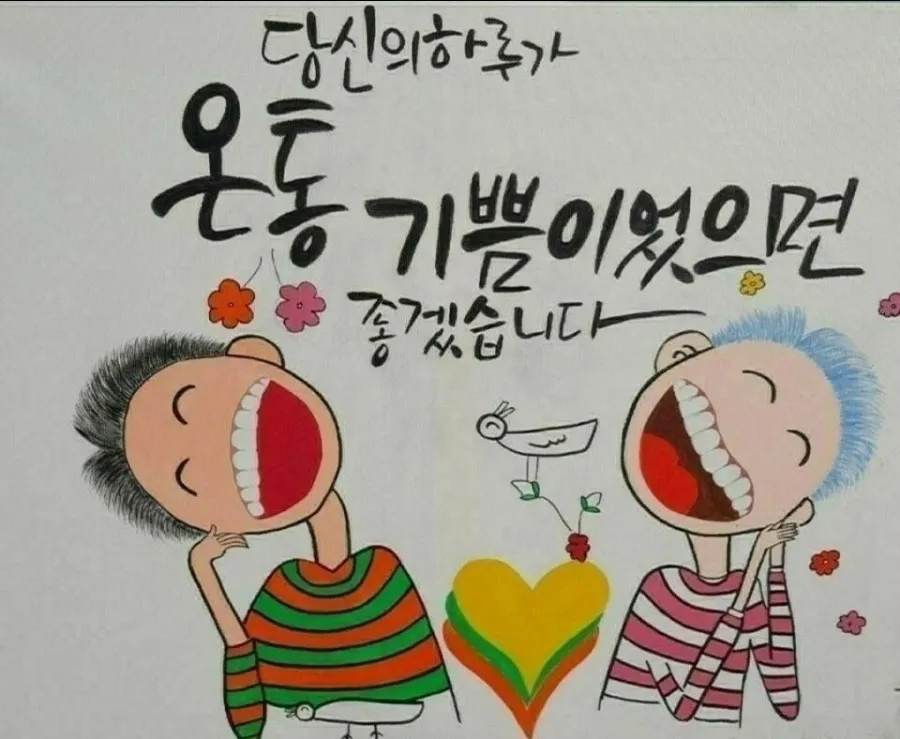 당신의하루가
온통 기쁨이었으면
좋겠습니다